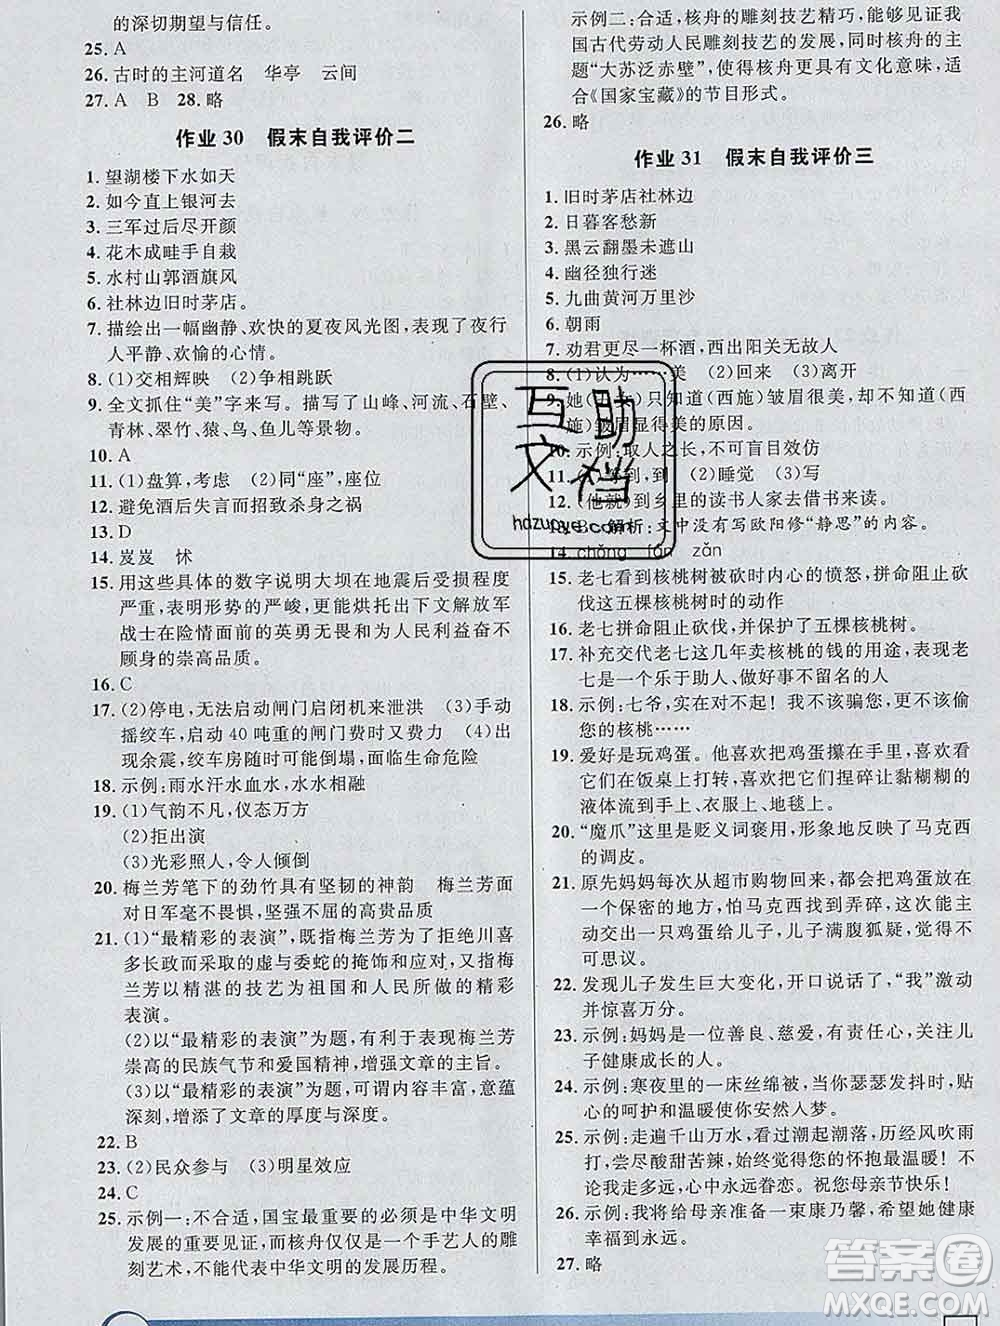 的深切期望与信任。
25. A
26. 古时的主河道名 华亭 云间
27. A B 28. 略
作业 30 假末自我评价二
1. 望湖楼下水如天
2. 如今直上银河去
3. 三军过后尽开颜
4. 花木成畦手自栽
5. 水村山郭酒旗风
6. 社林边旧时茅店。
7. 描绘出一幅幽静、欢快的夏夜风光图，表现了夜行
人平静、欢愉的心情。
8. (1)交相辉映 (2)争相跳跃
9. 全文抓住“美”字来写。描写了山峰、河流、石壁、
青林、翠竹、猿、鸟、鱼儿等景物。
10. A
11. (1)盘算，考虑 (2)同“座”，座位
12. 避免酒后失言而招致杀身之祸
13. D
14. 岌岌 怵
15. 用这些具体的数字说明大坝在地震后受损程度
严重，表明形势的严峻，更能烘托出下文解放军
战士在险情面前的英勇无畏和为人民利益奋不
顾身的崇高品质。
16. C
17. (2)停电，无法启动闸门启闭机来泄洪 (3)手动
摇绞车，启动 40 吨重的闸门费时又费力 (4)出
现余震，绞车房随时可能倒塌，面临生命危险
18. 示例：雨水汗水血水，水水相融
19. (1)气韵不凡，仪态万方
(2)拒出演
(3)光彩照人，令人倾倒
20. 梅兰芳笔下的劲竹具有坚韧的神韵 梅兰芳面
对日军毫不畏惧，坚强不屈的高贵品质
21. (1)“最精彩的表演”，既指梅兰芳为了拒绝川喜
多长政而采取的虚与委蛇的掩饰和应对，又指梅
兰芳以精湛的技艺为祖国和人民所做的精彩
表演。
(2)以“最精彩的表演”为题，有利于表现梅兰芳
崇高的民族气节和爱国精神，增强文章的主旨。
(3)以“最精彩的表演”为题，可谓内容丰富，意蕴
深刻，增添了文章的厚度与深度。
22. B
23. (2)民众参与 (3)明星效应
24. C
25. 示例一：不合适，国宝最重要的必须是中华文明
发展的重要见证，而核舟仅仅是一个手艺人的雕
刻艺术，不能代表中华文明的发展历程。
示例二：合适，核舟的雕刻技艺精巧，能够见证我
国古代劳动人民雕刻技艺的发展，同时核舟的主
题“大苏泛赤壁”，使得核舟更具有文化意味，适
合《国家宝藏》的节目形式。
26. 略
作业 31 假末自我评价三
1. 旧时茅店社林边
2. 日暮客愁新
3. 黑云翻墨未遮山
4. 幽径独行迷
5. 九曲黄河万里沙
6. 朝雨
7. 劝君更尽一杯酒，西出阳关无故人
8. (1)认为……美 (2)回来 (3)离开
9. 她 只知道(西施)皱眉很美，却不知道(西
施)皱眉显得美的原因。
10. 示例：取人之长，不可盲目效仿
11. (1)等到，到 (2)睡觉 (3)写
12. (他就)到乡里的读书人家去借书来读。
13. B 解析：文中没有写欧阳修“静思”的内容。
14. chǒng fān zǎn
15. 老七看到核桃树被砍时内心的愤怒，拼命阻止砍
伐这五棵核桃树时的动作
16. 老七拼命阻止砍伐，并保护了五棵核桃树。
17. 补充交代老七这几年卖核桃的钱的用途，表现老
七是一个乐于助人、做好事不留名的人
18. 示例：七爷，实在对不起！我不该骗您，更不该偷
您的核桃……
19. 爱好是玩鸡蛋。他喜欢把鸡蛋攥在手里，喜欢看
它们在饭桌上打转，喜欢把它们捏碎让黏糊糊的
液体流到手上、衣服上、地毯上。
20. “魔爪”这里是贬义词褒用，形象地反映了马克西
的调皮。
21. 原先妈妈每次从超市购物回来，都会把鸡蛋放在
一个保密的地方，怕马克西拿去弄碎，这次能主
动交出一只鸡蛋给儿子，儿子满腹狐疑，觉得不
可思议。
22. 发现儿子发生巨大变化，开口说话了，“我”激动
并惊喜万分。
23. 示例：妈妈是一位善良、慈爱，有责任心，关注儿
子健康成长的人。
24. 示例：寒夜里的一床丝绵被，当你瑟瑟发抖时，贴
心的呵护和温暖使你安然入梦。
25. 示例：走遍千山万水，看过潮起潮落，历经风吹雨
打，尝尽酸甜苦辣，始终觉得您的怀抱最温暖！不
论我走多远，心中永远眷恋。祝您母亲节快乐！
26. 示例：我将给母亲准备一束康乃馨，希望她健康
幸福到永远。
27. 略
互助
文档
hdzuoye.com
答案圈
MXQE.COM